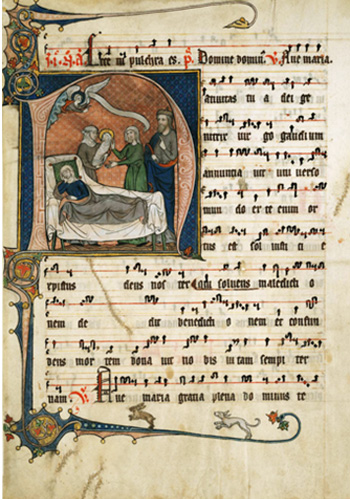 pulchra es. p Domine domin V Aue maria.
N atiuitas tu a dei ge
nitrix uir go gaudium
annuncia uit uni uerso
mun do ex te enim or
tus est sol iusti ci e
xpistus deus nos ter Qui soluens maledicti o
nem de dit benedicti o nem et confun
dens mor tem dona uit no bis uitam sempi ter
nam. V Aue maria gratia plena do minus te